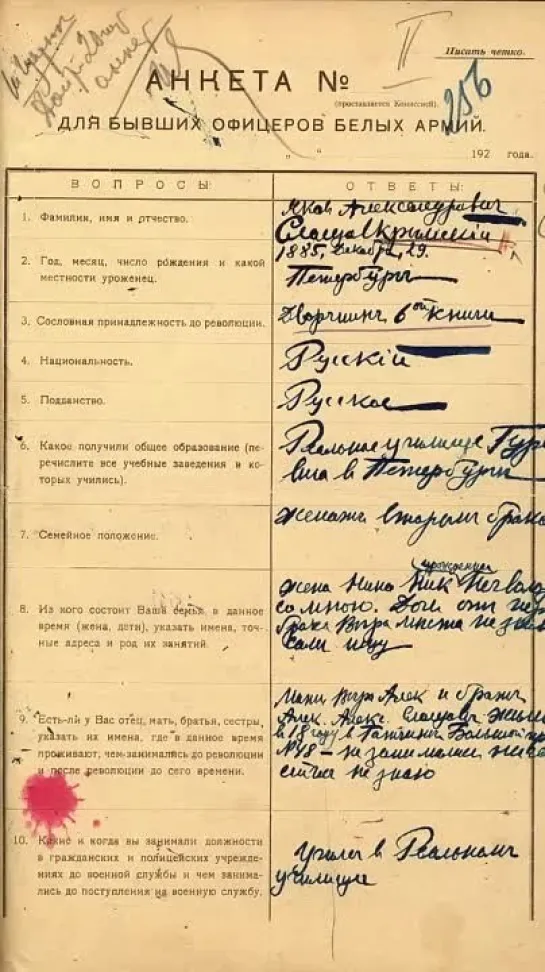 II
Писать четко.
АНКЕТА №
(проставляется Комиссией).
256
ДЛЯ БЫВШИХ ОФИЦЕРОВ БЕЛЫХ АРМИЙ.
„ „ 192 года.
ВОПРОСЫ:
ОТВЕТЫ:
1. Фамилия, имя и отчество.
Яков Александрович
Слащов Крымский
2. Год, месяц, число рождения и какой
местности уроженец.
1885, Декабря, 29.
Петербургъ
3. Сословная принадлежность до революции.
Дворянинъ 6ой книги
4. Национальность.
Русскій
5. Подданство.
Русское
6. Какое получили общее образование (пе-
речислите все учебные заведения в ко-
торых учились).
Реальное училище Гуре
вича в Петербурге
7. Семейное положение.
женатъ вторым брако
8. Из кого состоит Ваша семья в данное
время (жена, дети), указать имена, точ-
ные адреса и род их занятий.
жена Нина Ник
со мною. Дочь от
брака Вера места не
ищу
9. Есть-ли у Вас отец, мать, братья, сестры,
указать их имена, где в данное время
проживают, чем-занимались до революции
и после революции до сего времени.
Мать Вера Алек и братъ
Алек. Алекс. Слащовъ
в 18 году в Гатчине Большой
№48 – не занимались
сейчас не знаю
10. Какие и когда вы занимали должности
в гражданских и полицейских учрежде-
ниях до военной службы и чем занима-
лись до поступления на военную службу.
Учился в Реальном
училище